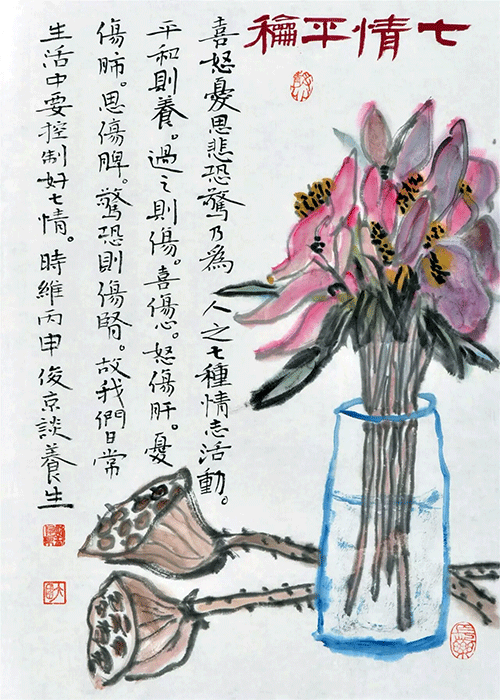 七情平龢
喜怒憂思悲恐驚乃為人之七種情志活動。
平和則養。過之則傷。喜傷心。怒傷肝。憂
傷肺。思傷脾。驚恐則傷腎。故我們日常
生活中要控制好七情。時維丙申俊京談養生